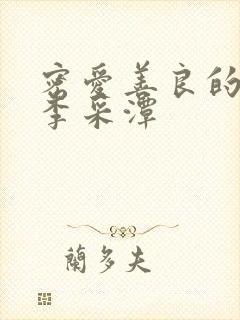 密愛善良的
李采潭
蘭多夫